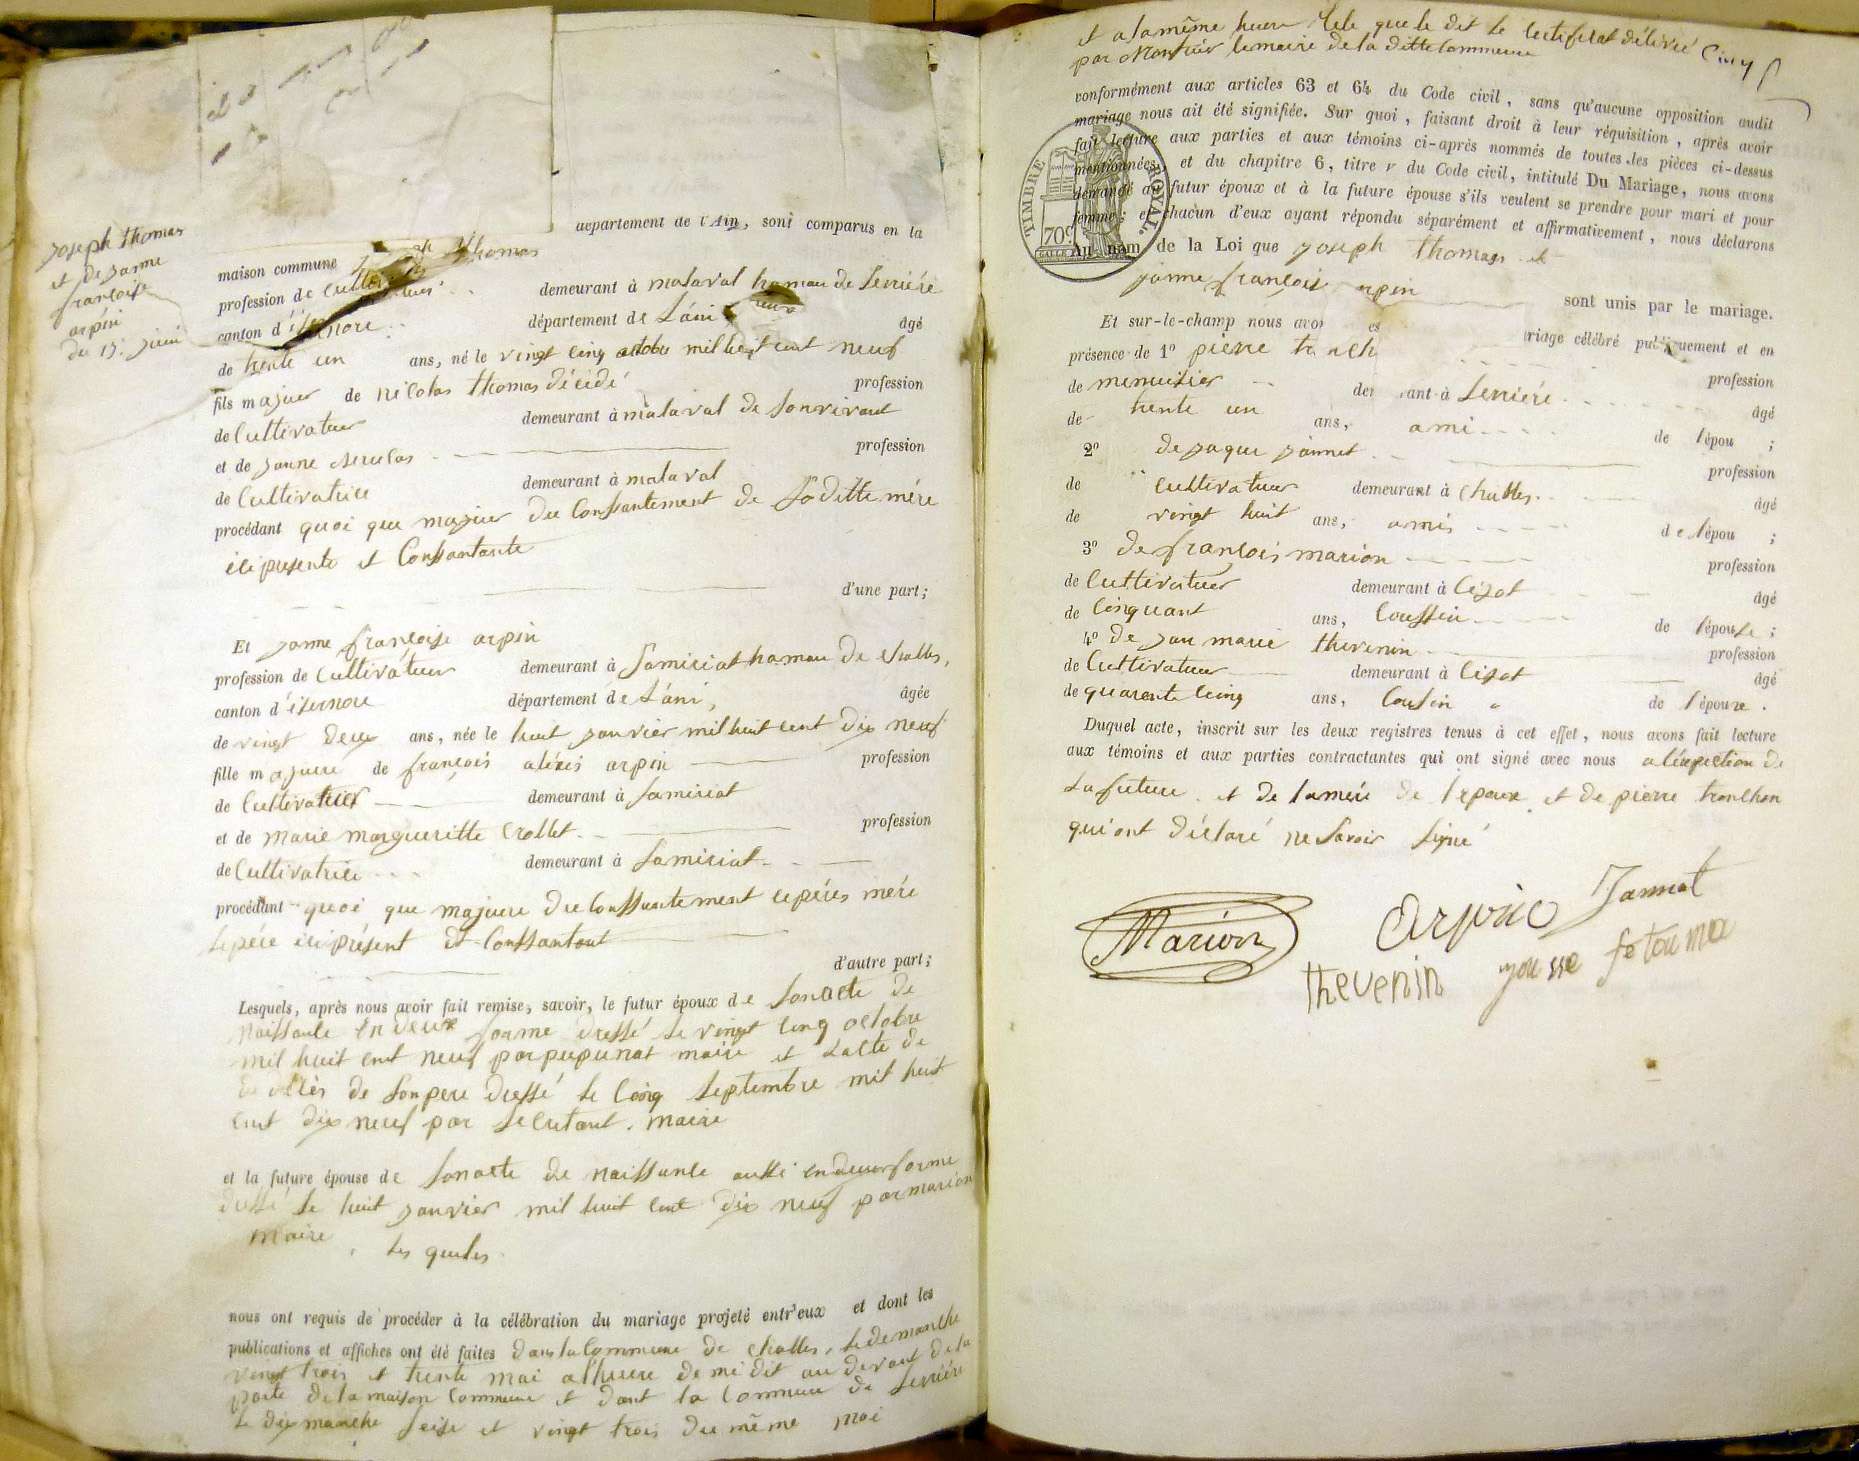 joseph thomas
et de janne
françoise
arpin
du 15. juin
département de l'Ain, sont comparus en la
maison commune thomas
profession de cultivateur demeurant à malaval hamau de Serriéré
canton d'isernore département de L'ain âgé
de trente un ans, né le vingt cinq octobre mil huit cent neuf
fils majeur de nicolas thomas décédé profession
de Cultivateur demeurant à malaval de Sonvivant
et de janne profession
de Cultivatrice demeurant à malaval
procédant quoi que majeur du Conssantement de Saditte mére
ici presente et Conssantante
d'une part;
Et janne françoise arpin
profession de Cultivateur demeurant à Samiriat hamau de challes,
canton d'isernore département de L'ain, âgée
de vingt deux ans, née le huit janvier mil huit cent dix neuf
fille majeure de françois aléxis arpin profession
de Cultivateur demeurant à Samiriat
et de marie margueritte Crollet profession
de Cultivatrice demeurant à Samiriat
procédant quoi que majeure du Conssantement ce péres mére
le pére ici présent et Conssantant
d'autre part;
Lesquels, après nous avoir fait remise, savoir, le futur époux de Sonacte de
Naissance en deux forme dressé le vingt cinq octobre
mil huit cent neuf par pupunat maire et L'acte de
de décès de Sonpere dressé le cinq Septembre mil huit
cent dix neuf par maire
et la future épouse de Sonacte de Naissance aussi en deux forme
dressé le huit janvier mil huit cent dix neuf par marion
Maire
Les quelles
nous ont requis de procéder à la célébration du mariage projeté entr'eux et dont les
publications et affiches ont été faites dans la Commune de challes, le demanche
vingt trois et trente mai a l'heure de midit au devant de la
porte de la maison Commune et dant la Commune de Serriére
Le dixmanche Seise et vingt trois du même mai
et a la même heure tele que le dit le certificat délivré
par Monsieur le maire de la ditte Commune
conformément aux articles 63 et 64 du Code civil, sans qu'aucune opposition audit
mariage nous ait été signifiée. Sur quoi, faisant droit à leur réquisition, après avoir
fait lecture aux parties et aux témoins ci-après nommés de toutes les pièces ci-dessus
mentionnées, et du chapitre 6, titre v du Code civil, intitulé Du Mariage, nous avons
demandé au futur époux et à la future épouse s'ils veulent se prendre pour mari et pour
femme; et chacun d'eux ayant répondu séparément et affirmativement, nous déclarons
TIMBRE ROYAL.
70c
Au nom de la Loi que joseph thomas et
janne françoise arpin sont unis par le mariage.
Et sur-le-champ nous avo mariage célébré publiquement et en
présence de 1º pierre profession
de menuisier demeurant à Serriéré âgé
de trente un ans, ami de l'épou ;
2º de jaque jannet profession
de cultivateur demeurant à challes âgé
de vingt huit ans, amis de l'épou ;
3º de françois marion profession
de Cultivateur demeurant à Cizot âgé
de Cinquant ans, Coussin de l'épouse ;
4º de jan marie thevenin profession
de Cultivateur demeurant à Cizot âgé
de quarente cinq ans, Cousin de l'épouze.
Duquel acte, inscrit sur les deux registres tenus à cet effet, nous avons fait lecture
aux témoins et aux parties contractantes qui ont signé avec nous a léxpection de
La future et de la mére de l'epoux et de pierre tronchon
qui ont déclaré ne Savoir Signé
Marion
Arpin
Jannet
thevenin
yousse fe touma